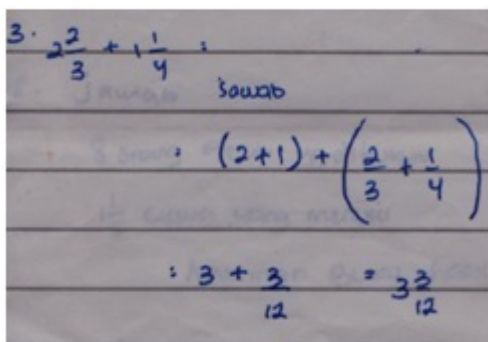 3. 2 2/3 + 1 1/4 :
Jawab
: (2+1) + (2/3 + 1/4)
: 3 + 3/12 = 3 3/12